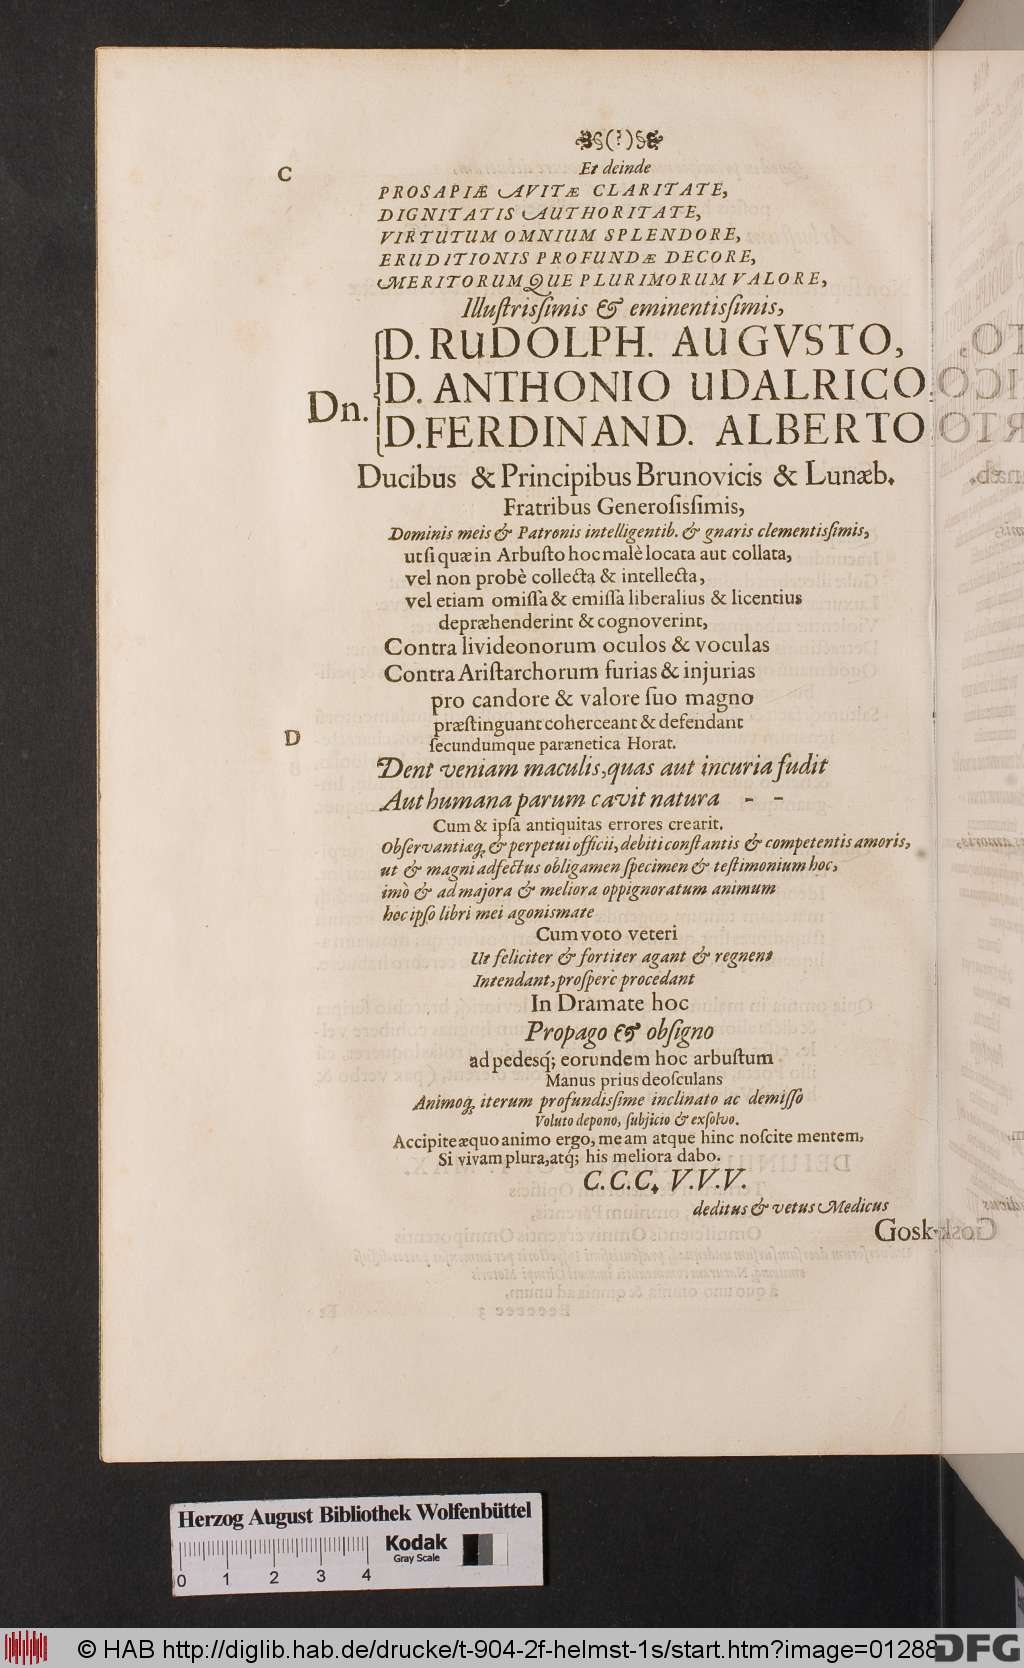 §(?)§
Et deinde
C
PROSAPIÆ AVITÆ CLARITATE,
DIGNITATIS AUTHORITATE,
VIRTUTUM OMNIUM SPLENDORE,
ERUDITIONIS PROFUNDÆ DECORE,
MERITORUMQUE PLURIMORUM VALORE,
Illustrisſimis & eminentisſimis,
D. RUDOLPH. AUGVSTO,
Dn. D. ANTHONIO UDALRICO,
D. FERDINAND. ALBERTO
Ducibus & Principibus Brunovicis & Lunæb.
Fratribus Generoſisſimis,
Dominis meis & Patronis intelligentib. & gnaris clementisſimis,
ut ſi quæ in Arbuſto hoc malè locata aut collata,
vel non probè collecta & intellecta,
vel etiam omiſſa & emiſſa liberalius & licentius
depræhenderint & cognoverint,
Contra livideonorum oculos & voculas
Contra Ariſtarchorum furias & injurias
pro candore & valore ſuo magno
præſtinguant coherceant & defendant
D
ſecundumque parænetica Horat.
Dent veniam maculis, quas aut incuria fudit
Aut humana parum cavit natura - -
Cum & ipſa antiquitas errores crearit.
Obſervantiæq; & perpetui officii, debiti conſtantis & competentis amoris,
ut & magni adfectus obligamen ſpecimen & teſtimonium hoc,
imò & ad majora & meliora oppignoratum animum
hoc ipſo libri mei agonismate
Cum voto veteri
Ut feliciter & fortiter agant & regnent
Intendant, proſperè procedant
In Dramate hoc
Propago & obſigno
ad pedesq́; eorundem hoc arbuſtum
Manus prius deoſculans
Animoq; iterum profundisſime inclinato ac demiſſo
Voluto depono, ſubjicio & exſolvo.
Accipite æquo animo ergo, meam atque hinc noſcite mentem,
Si vivam plura, atq́; his meliora dabo.
C. C. C. V. V. V.
deditus & vetus Medicus
Gosk-
Herzog August Bibliothek Wolfenbüttel
Kodak
Gray Scale
0 1 2 3 4
© HAB http://diglib.hab.de/drucke/t-904-2f-helmst-1s/start.htm?image=01288
DFG